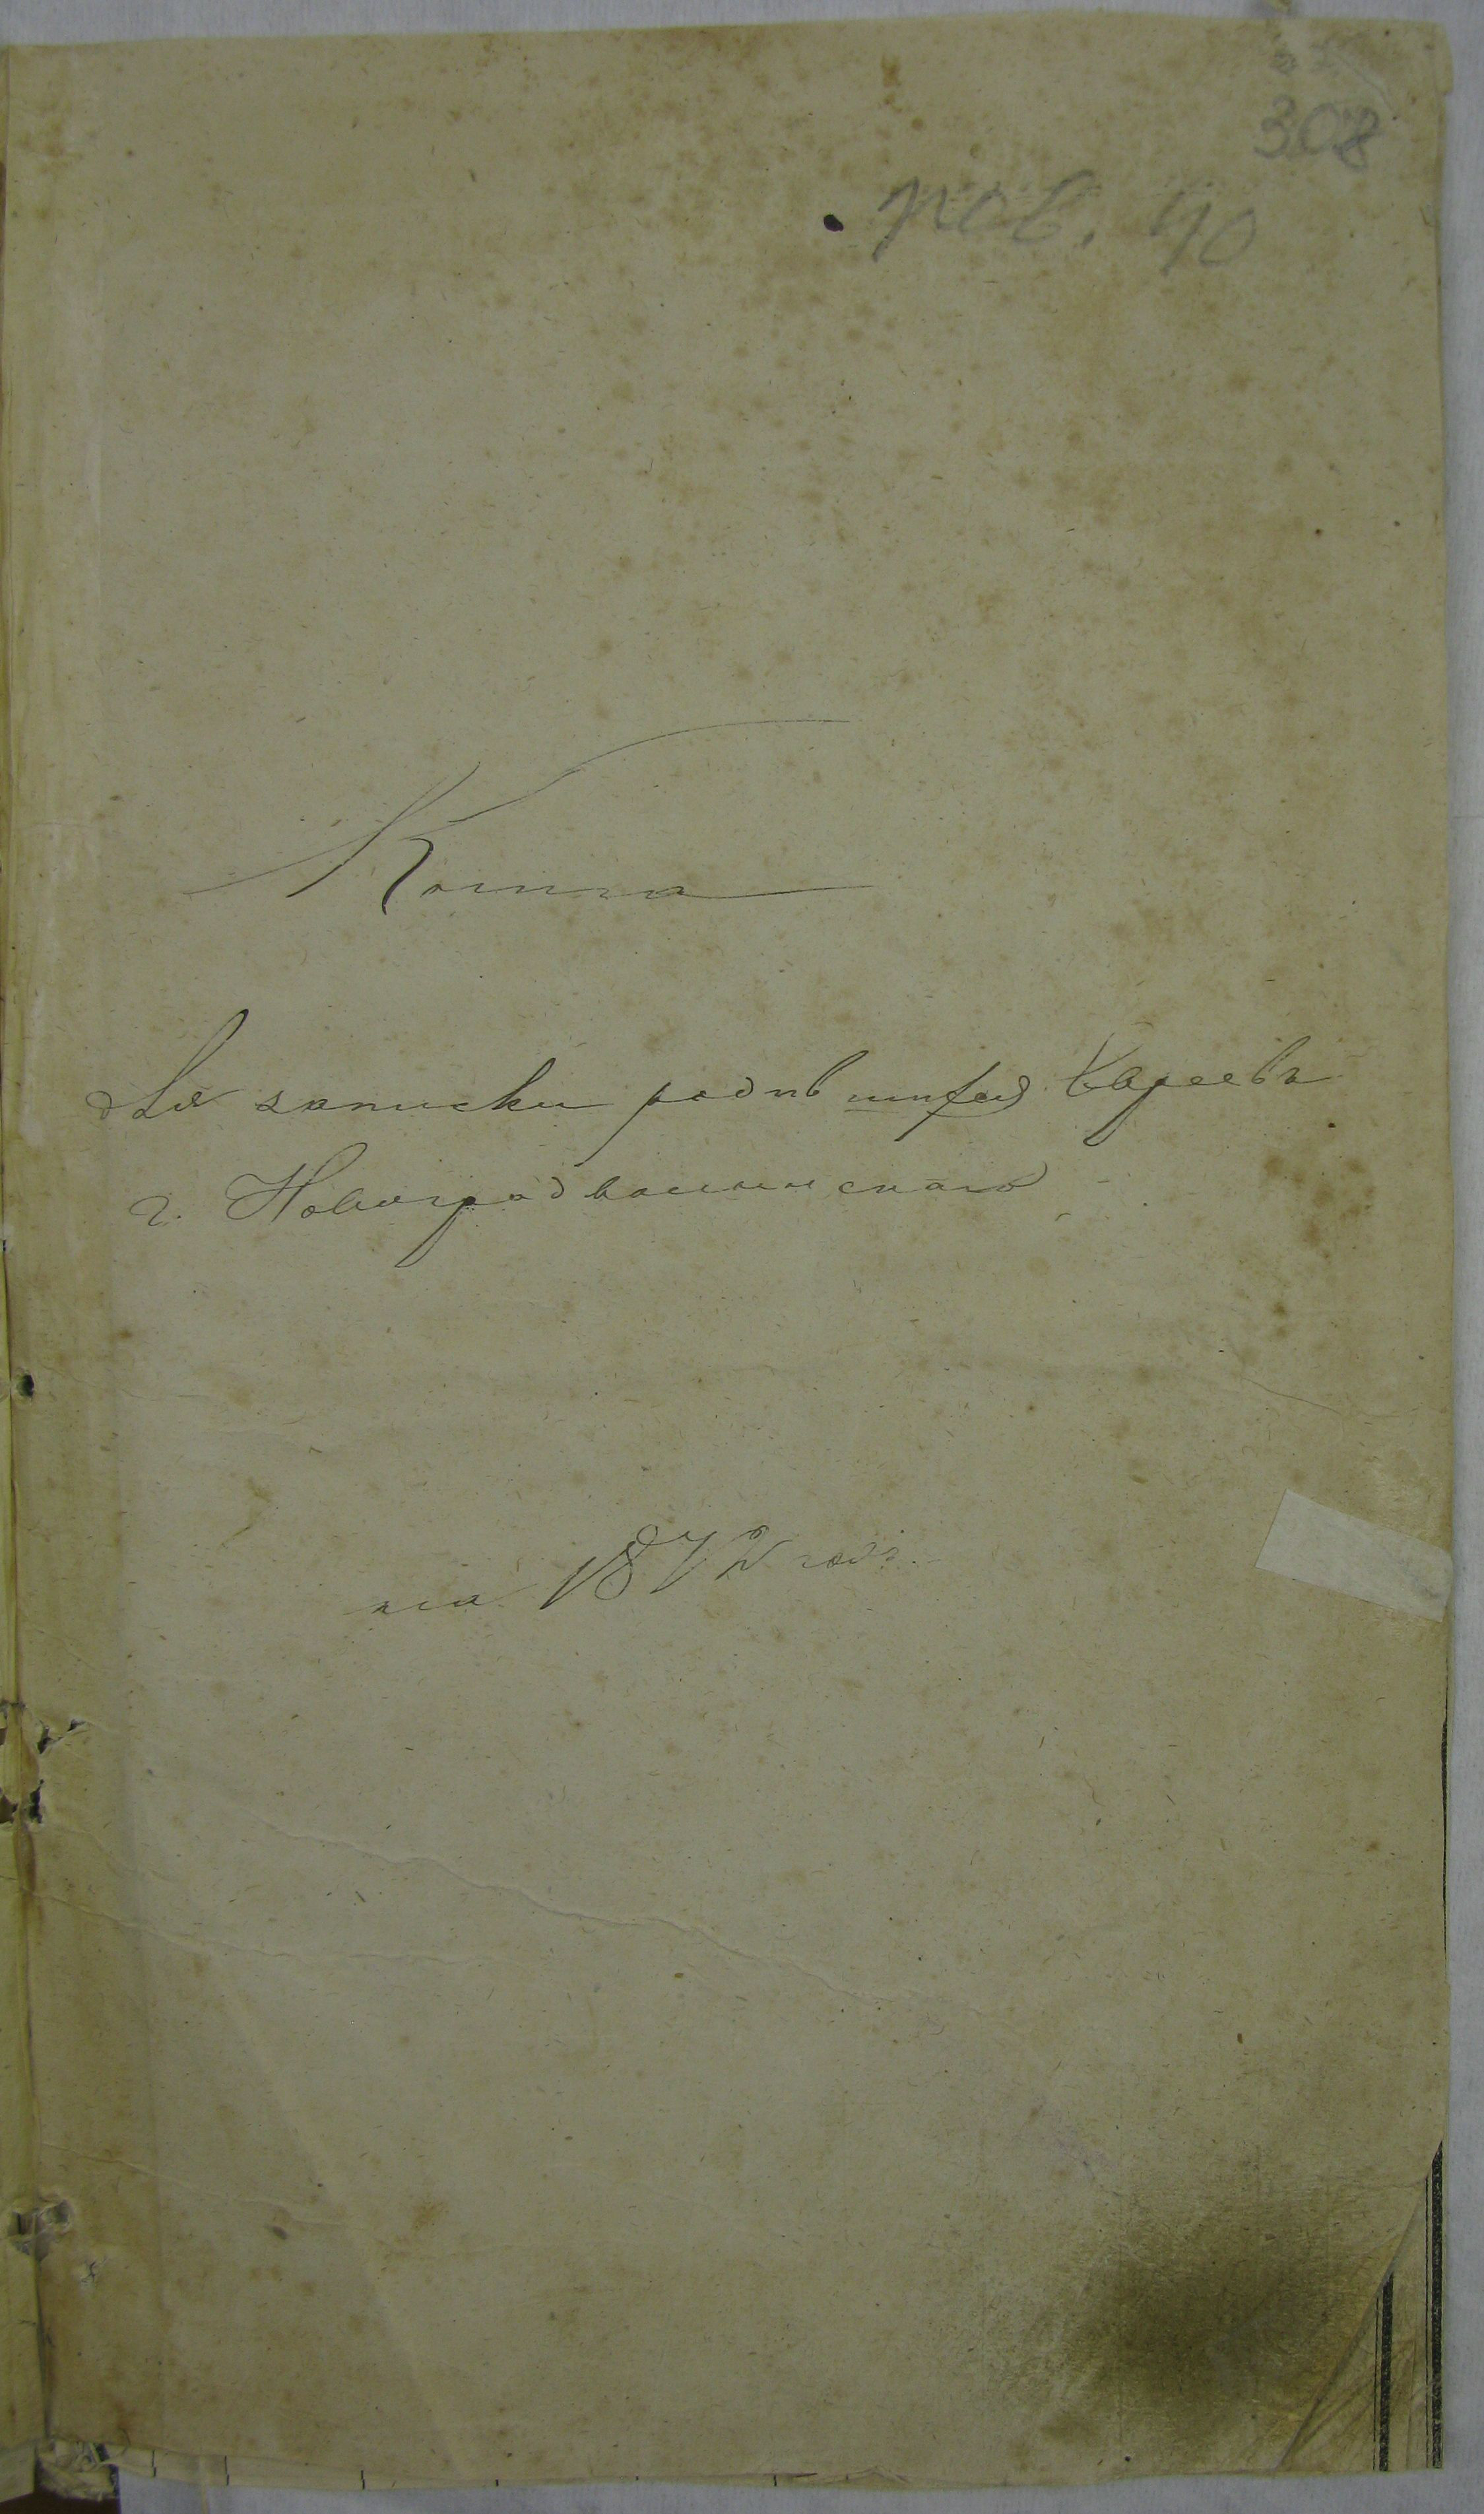 308
ров. 40
Книга
для записки родившихся Евреевъ
г. Новоградволынскаго
на 1872 годъ.